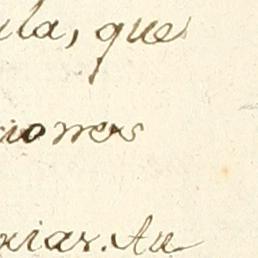 ula, que
ciones
rias. Au